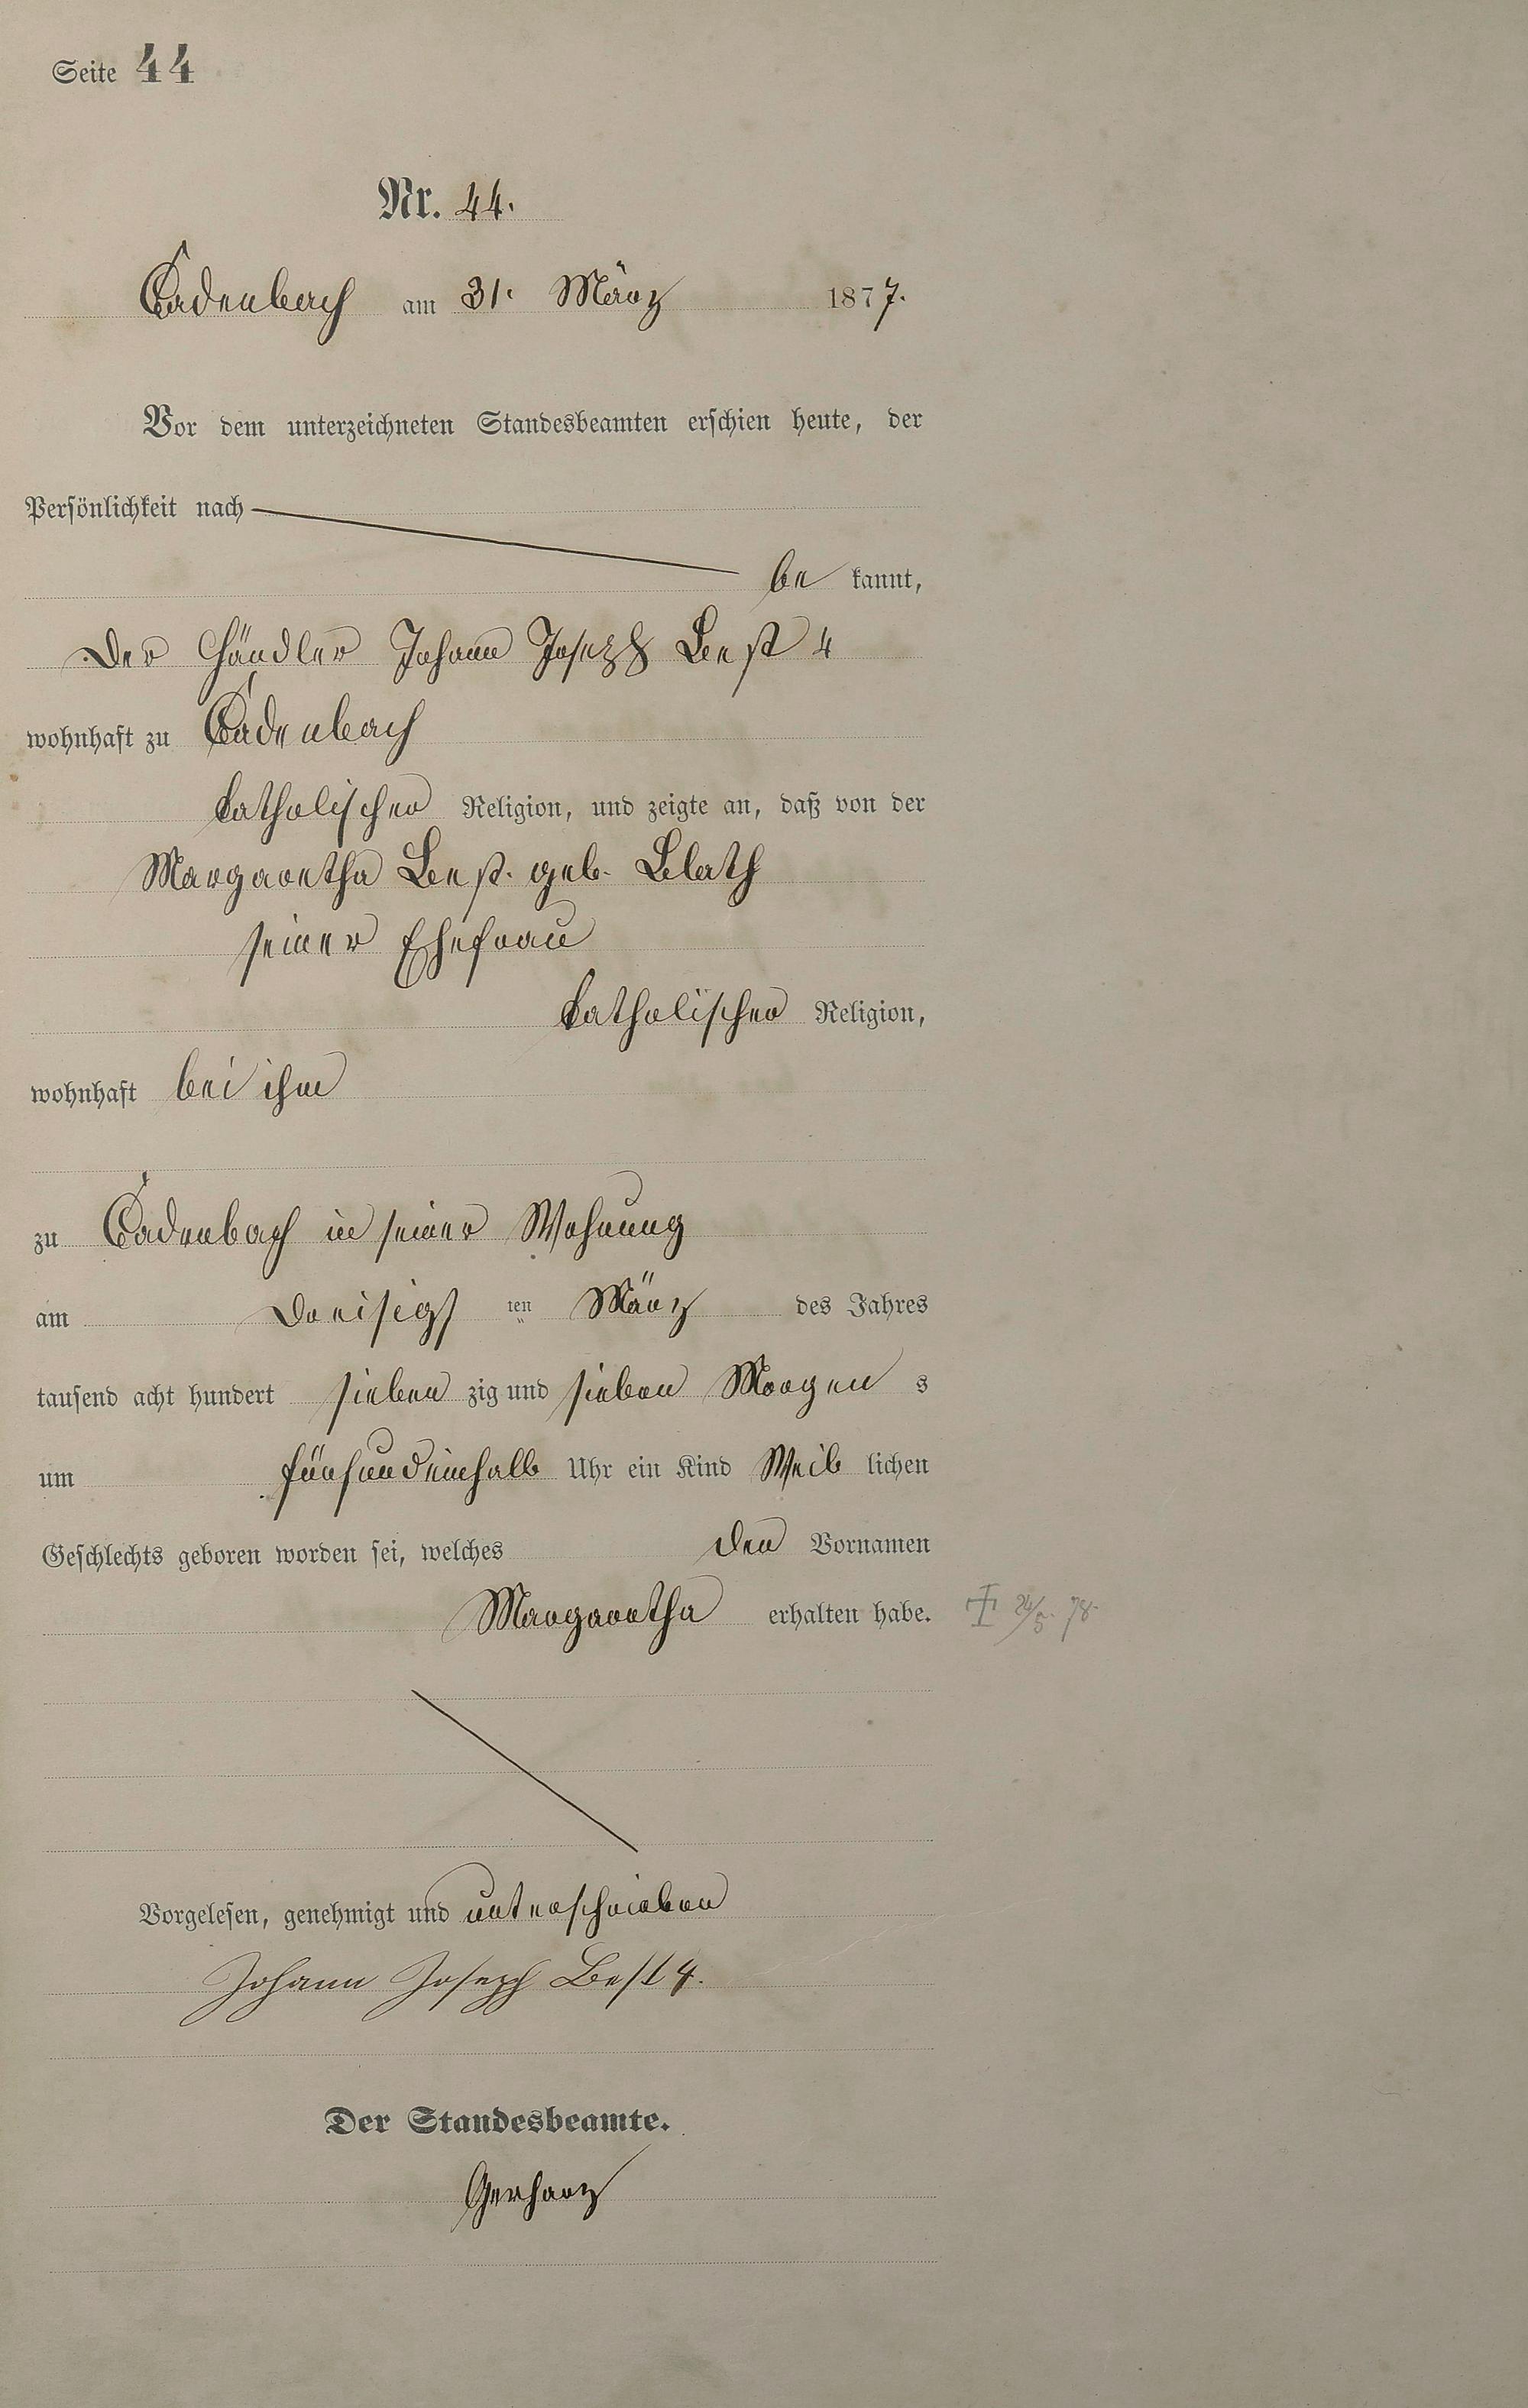 Seite 44
Nr. 44.
Cadenbach am 31. März 1877.
Vor dem unterzeichneten Standesbeamten erschien heute, der
Persönlichkeit nach
be kannt,
Der Händler Johann Joseph Best 4
wohnhaft zu Cadenbach
katholischer Religion, und zeigte an, daß von der
Margaretha Best. geb. Blath
seiner Ehefrau
katholischer Religion,
wohnhaft bei ihm
zu Cadenbach in seiner Wohnung
am Dreisigs ten März des Jahres
tausend acht hundert sieben zig und sieben Morgen s
um fünfundeinhalb Uhr ein Kind Weib lichen
Geschlechts geboren worden sei, welches den Vornamen
Margaretha erhalten habe. † 24/5. 78.
Vorgelesen, genehmigt und unterschrieben
Johann Joseph Best 4.
Der Standesbeamte.
Gerharz